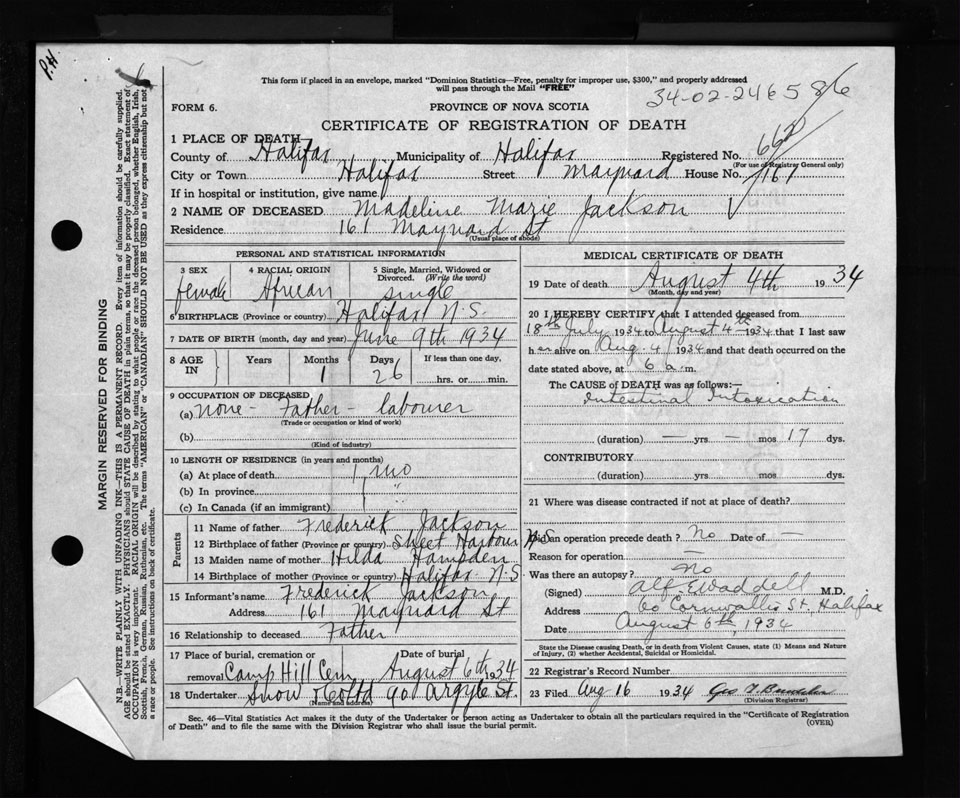 P.H
This form if placed in an envelope, marked "Dominion Statistics—Free, penalty for improper use, $300," and properly addressed
will pass through the Mail "FREE"
34-02-246586
FORM 6.
PROVINCE OF NOVA SCOTIA
CERTIFICATE OF REGISTRATION OF DEATH
1 PLACE OF DEATH—
County of Halifax Municipality of Halifax Registered No. 662
(For use of Registrar General only)
City or Town Halifax Street Maynard House No. 161
If in hospital or institution, give name
2 NAME OF DECEASED Madeline Marie Jackson
Residence 161 Maynard St
(Usual place of abode)
PERSONAL AND STATISTICAL INFORMATION
3 SEX 4 RACIAL ORIGIN 5 Single, Married, Widowed or
Divorced. (Write the word)
female African single
6 BIRTHPLACE (Province or country) Halifax N.S.
7 DATE OF BIRTH (month, day and year) June 9th 1934
8 AGE IN Years Months Days If less than one day,
1 26 hrs. or min.
9 OCCUPATION OF DECEASED
(a) none - Father - labourer
(Trade or occupation or kind of work)
(b)
(Kind of industry)
10 LENGTH OF RESIDENCE (in years and months)
(a) At place of death 1 mo
(b) In province "
(c) In Canada (if an immigrant)
Parents
11 Name of father Frederick Jackson
12 Birthplace of father (Province or country) Sheet Harbour N.S
13 Maiden name of mother Hilda Hampden
14 Birthplace of mother (Province or country) Halifax N.S
15 Informant's name Frederick Jackson
Address 161 Maynard St
16 Relationship to deceased Father
17 Place of burial, cremation or Date of burial
removal Camp Hill Cem August 6th 1934
18 Undertaker Snow & Co Ltd 90 Argyle St.
(Name and address)
MEDICAL CERTIFICATE OF DEATH
19 Date of death August 4th 1934
(Month, day and year)
20 I HEREBY CERTIFY that I attended deceased from
18th July 1934 to August 4th 1934 that I last saw
her alive on Aug. 4 1934 and that death occurred on the
date stated above, at 6 a.m.
The CAUSE OF DEATH was as follows:—
Intestinal Intoxication
(duration) — yrs — mos 17 dys.
CONTRIBUTORY
(duration) yrs mos dys.
21 Where was disease contracted if not at place of death?
Did an operation precede death? No Date of —
Reason for operation —
Was there an autopsy? No
(Signed) Alf E Waddell M.D.
Address 60 Cornwallis St, Halifax
Date August 6th, 1934
State the Disease causing Death, or in death from Violent Causes, state (1) Means and Nature
of Injury, (2) whether Accidental, Suicidal or Homicidal.
22 Registrar's Record Number
23 Filed Aug 16 1934 Geo
(Division Registrar)
Sec. 46—Vital Statistics Act makes it the duty of the Undertaker or person acting as Undertaker to obtain all the particulars required in the "Certificate of Registration
of Death" and to file the same with the Division Registrar who shall issue the burial permit. (OVER)
MARGIN RESERVED FOR BINDING
N.B.—WRITE PLAINLY WITH UNFADING INK—THIS IS A PERMANENT RECORD. Every item of information should be carefully supplied.
AGE should be stated EXACTLY. PHYSICIANS should STATE CAUSE OF DEATH in plain terms, so that it may be properly classified. Exact statement of
OCCUPATION is very important. RACIAL ORIGIN will be described by stating to what people or race the deceased person belonged, whether English, Irish,
Scottish, French, German, Russian, Ruthenian, etc. The terms "AMERICAN" or "CANADIAN" SHOULD NOT BE USED as they express citizenship but not
a race or people. See instructions on back of certificate.